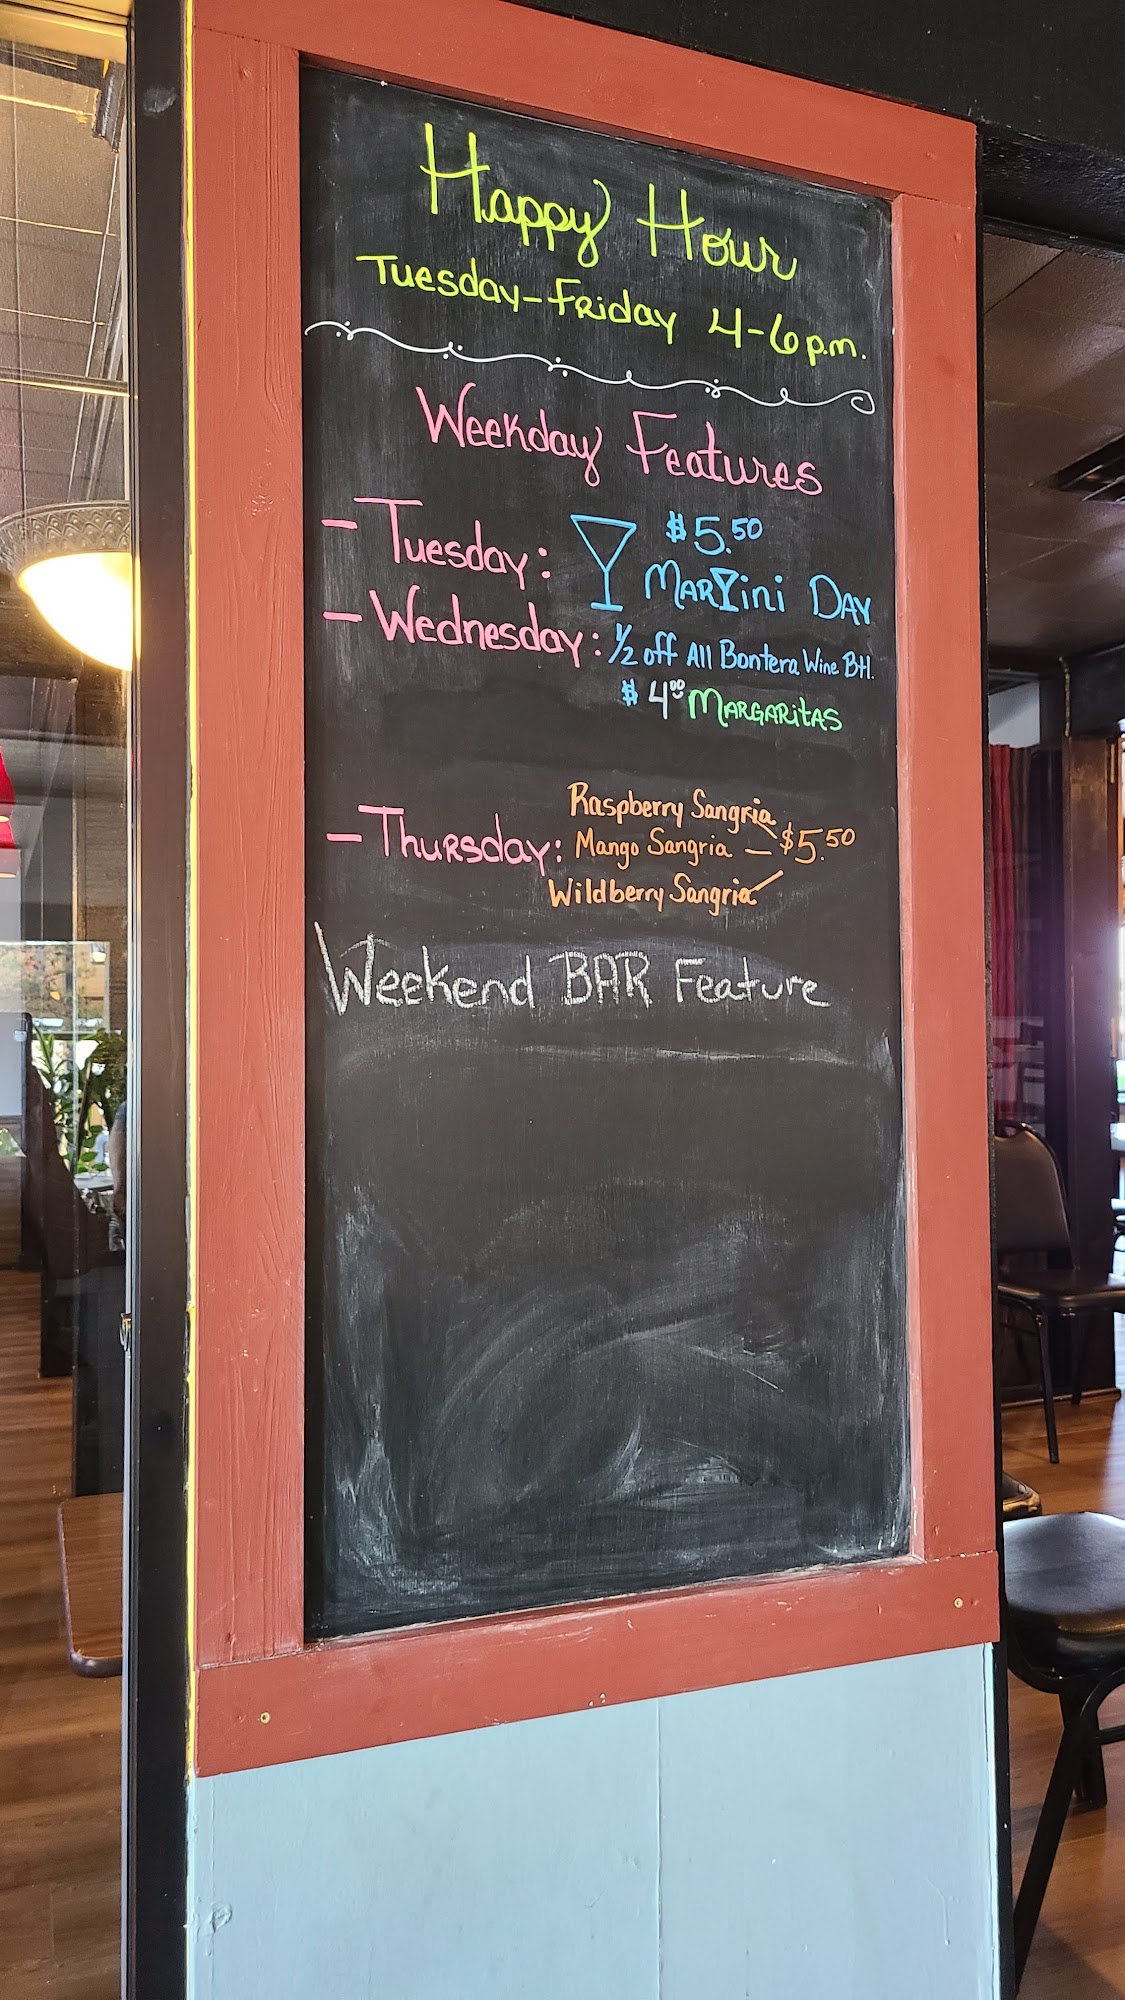 Happy Hour
Tuesday-Friday 4-6 p.m.
Weekday Features
- Tuesday: $5.50
Martini Day
- Wednesday: 1/2 off All Bontera Wine Btl.
$4.00 Margaritas
Raspberry Sangria
- Thursday: Mango Sangria - $5.50
Wildberry Sangria
Weekend BAR Feature